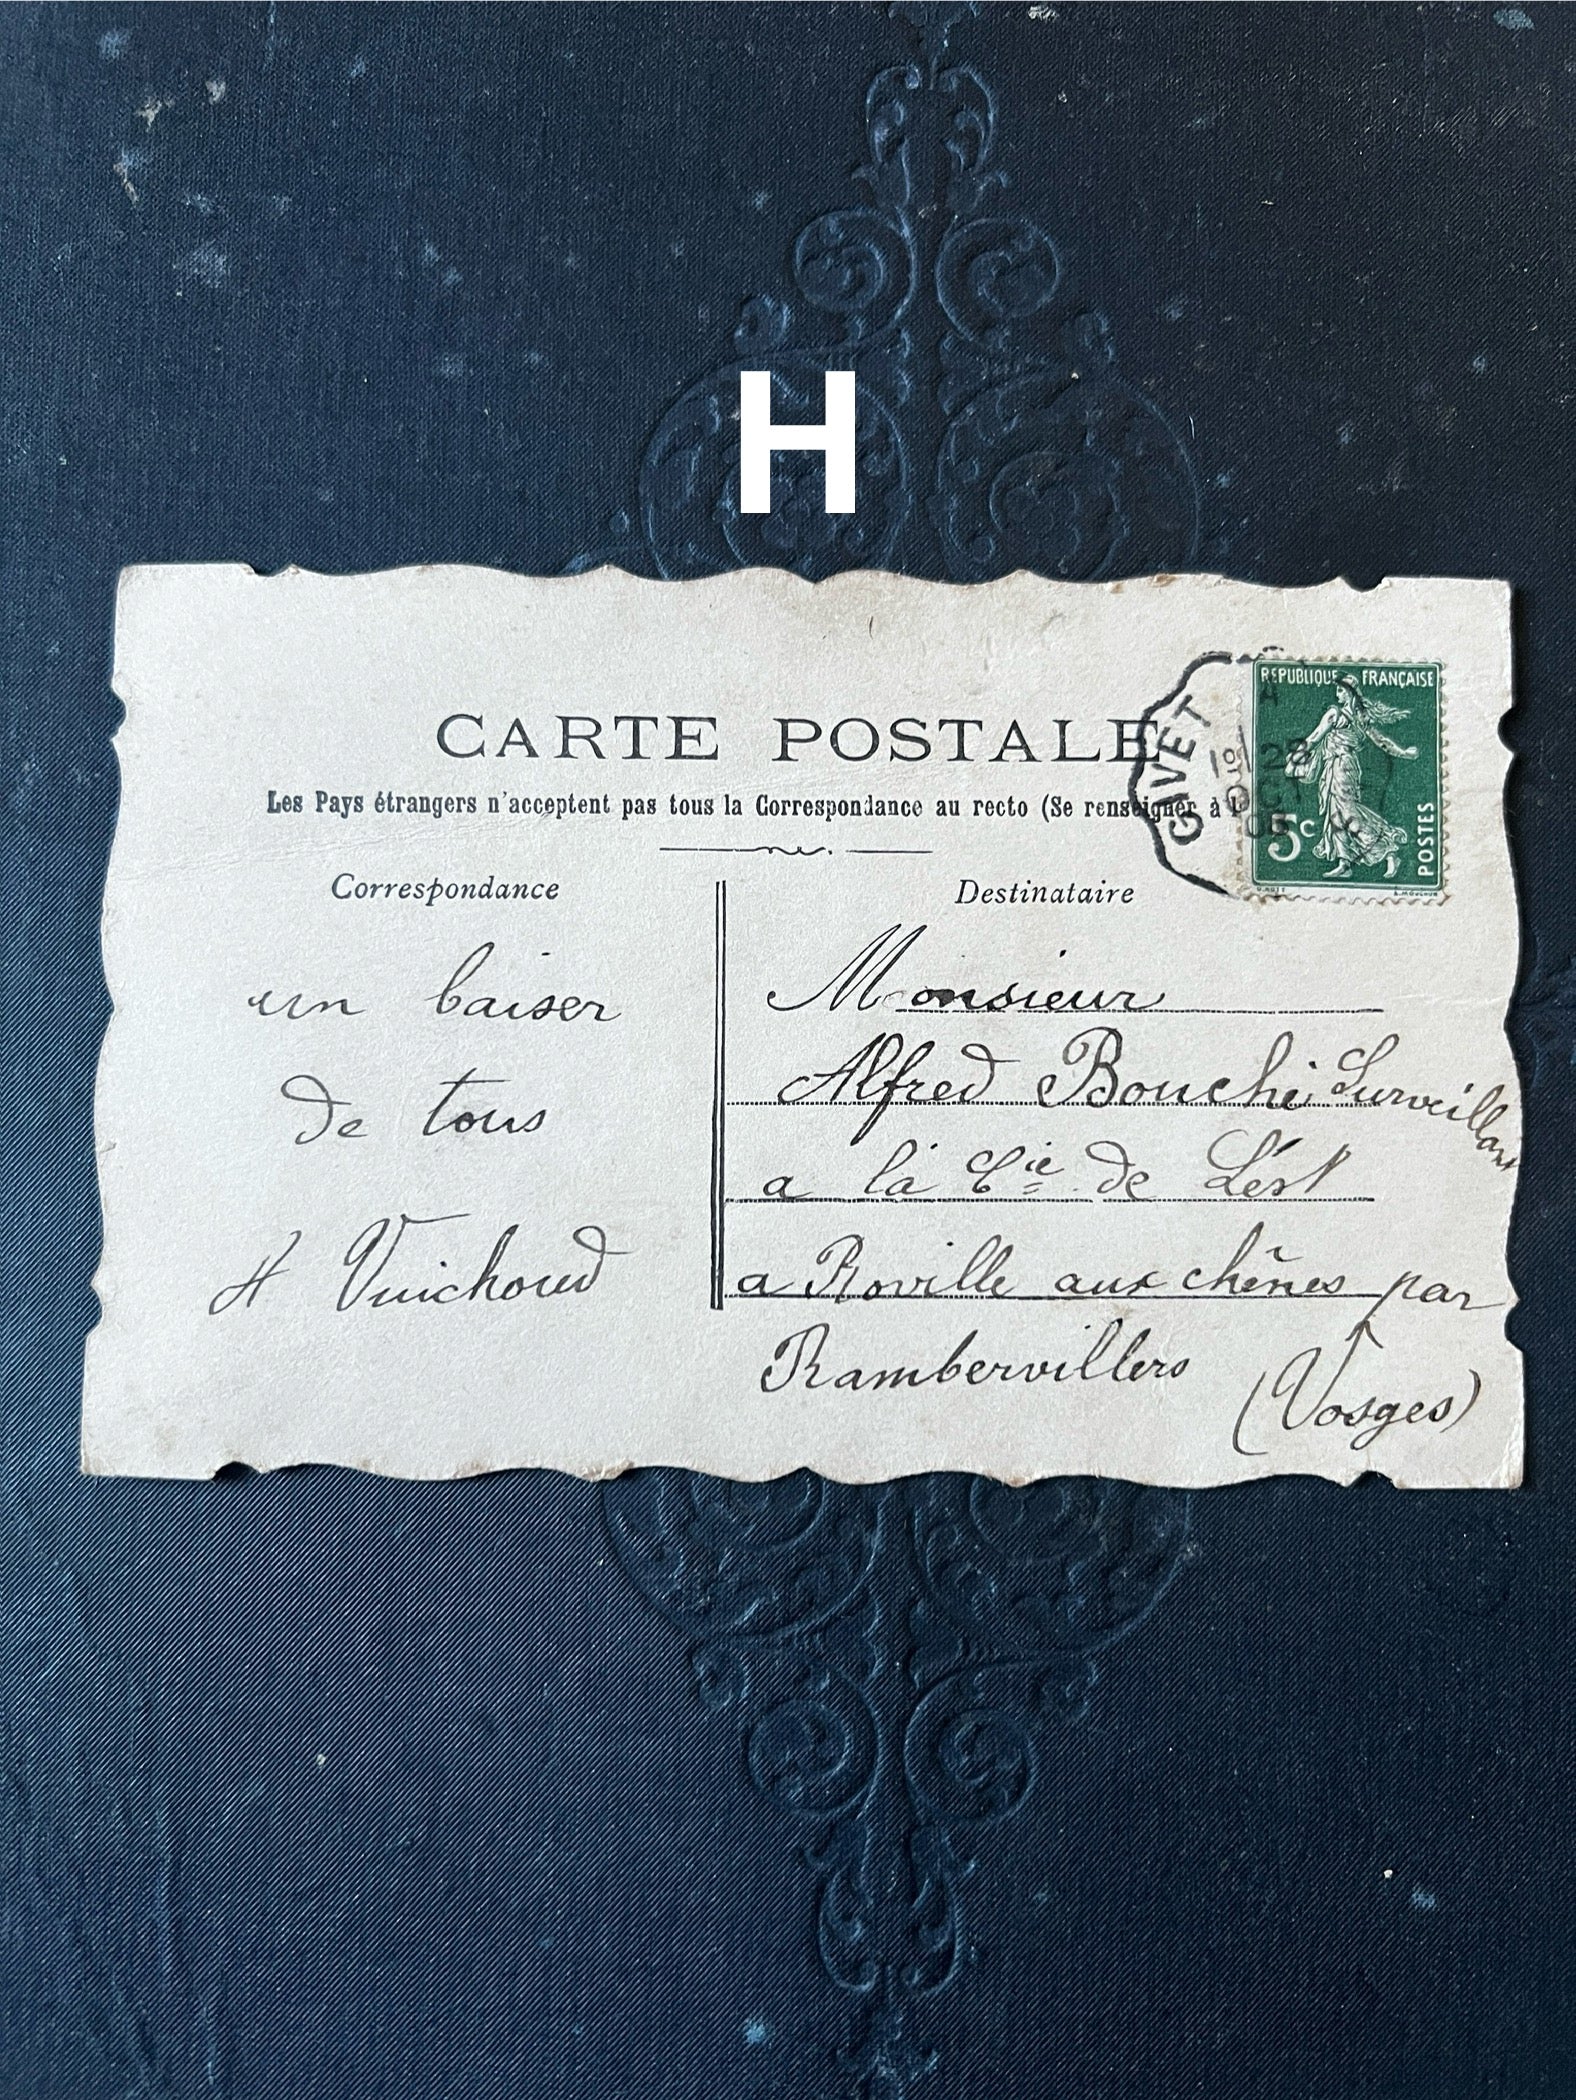 H
CARTE POSTALE
Les Pays étrangers n'acceptent pas tous la Correspondance au recto (Se renseigner à l
Correspondance
un baiser
de tous
A Vuichoud
Destinataire
Monsieur
Alfred Bouché Surveillant
a la Cie de L'ést
a Roville aux chênes par
Rambervillers
(Vosges)
GIVET
28
OCT
REPUBLIQUE FRANÇAISE
5c
POSTES